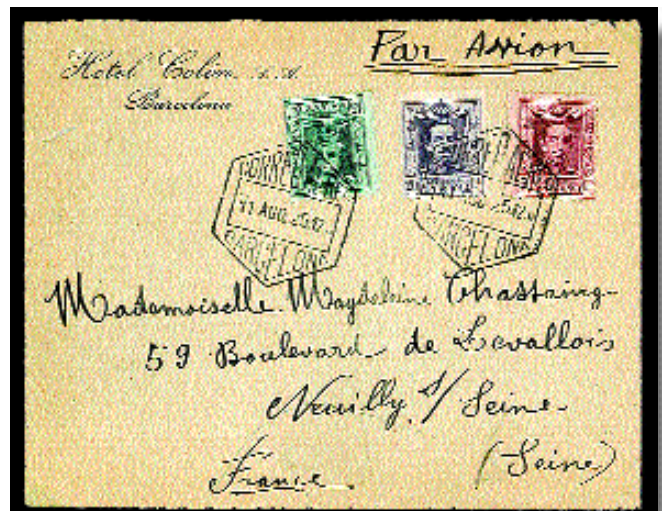 Hotel Colon S. A.
Barcelona
Par Avion
CORREO
11 AGO. 25.12
BARCELONA
CORREO
25.12
BARCELONA
Mademoiselle Magdeleine Chastaing
59 Boulevard de Levallois
Neuilly s/ Seine
(Seine)
France